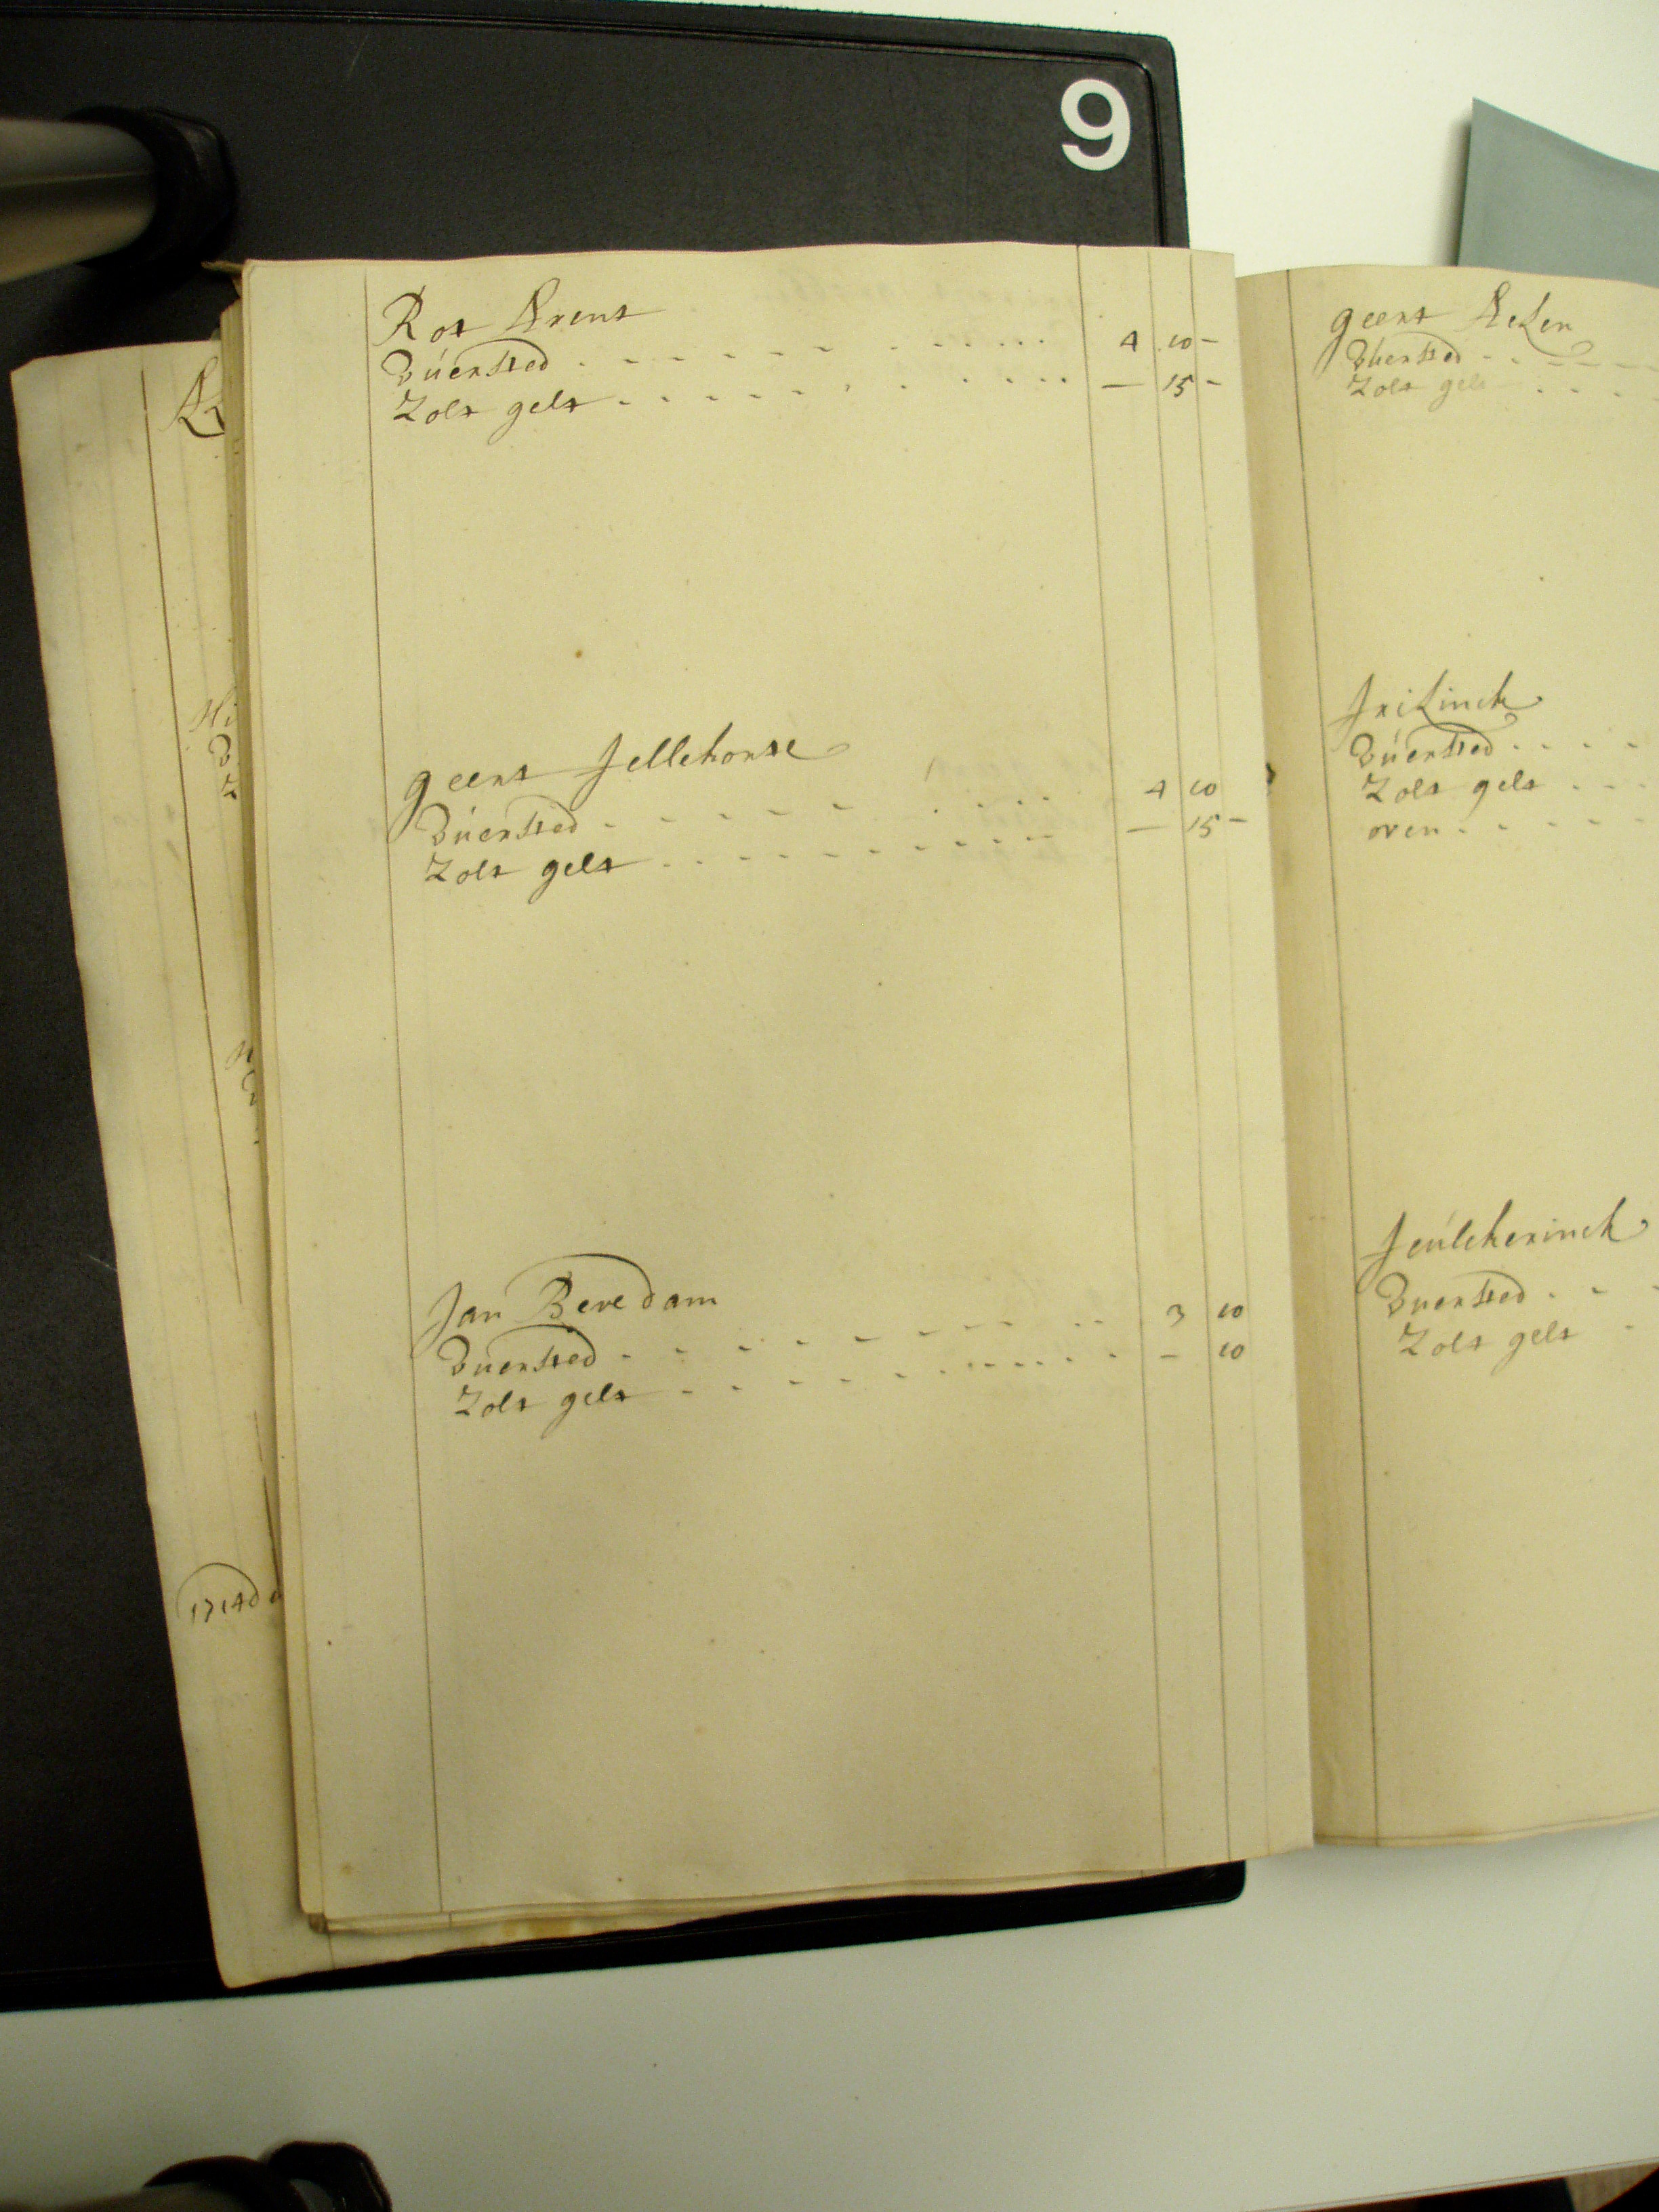 9
Rot Arent
vúersted - - - - - - - - - - 4 10 -
Zolt gelt - - - - - - - - - - — 15 -
geert Jellehorst
vúersted - - - - - - - - - 4 10
Zolt gelt - - - - - - - - - - — 15 -
Jan Beredam
vuersted - - - - - - - - - 3 10
Zolt gelt - - - - - - - - - - – 10
geert
vuersted - - - - -
Zolt gelt - - - -
vúersted - - - -
Zolt gelt - - -
oven - - - - -
vuersted - - -
Zolt gelt -
1714